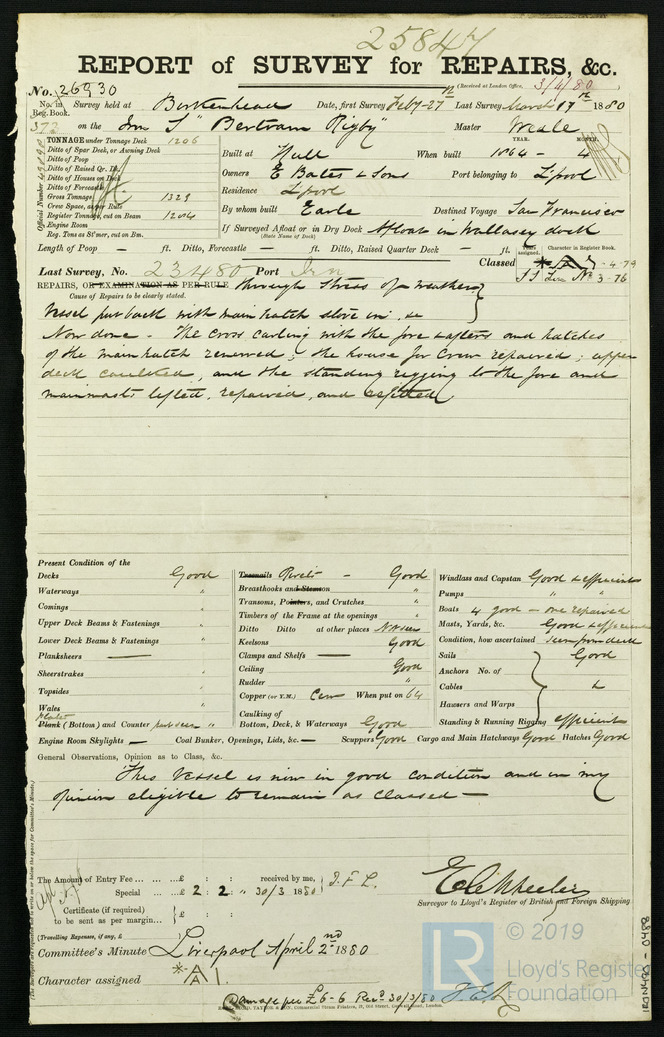 25847
REPORT of SURVEY for REPAIRS, &c.
(Received at London Office, 3/4/80
No. 26930
No. in Reg. Book. 372
Survey held at Birkenhead Date, first Survey Feby 27th Last Survey March 17th 1880
on the Irn S "Bertram Rigby" Master Weale
TONNAGE under Tonnage Deck 1206
Ditto of Spar Deck, or Awning Deck
Ditto of Poop
Ditto of Raised Qr. Dk.
Ditto of Houses on Deck
Ditto of Forecastle
Gross Tonnage 1329
Crew Space, as per Rule
Register Tonnage, cut on Beam 1204
Engine Room
Reg. Tons as St'mer, cut on Bm.
Official Number
YEAR. MONTH.
Built at Hull When built 1864 - 4
Owners E Bates & Sons Port belonging to L'pool
Residence L'pool
By whom built Earle Destined Voyage San Francisco
If Surveyed Afloat or in Dry Dock Afloat in Wallasey dock
(State Name of Dock)
Length of Poop — ft. Ditto, Forecastle — ft. Ditto, Raised Quarter Deck — ft.
Years assigned. Character in Register Book.
Last Survey, No. 23480 Port Irn Classed - 4.79
3-76
REPAIRS, OR EXAMINATION AS PER RULE through stress of weather
Cause of Repairs to be clearly stated.
Vessel put back with main hatch stove in: &c
Now done - The cross carling with the fore & afters and hatches
of the main hatch renewed; the house for Crew repaired; upper
deck caulked, and the standing rigging to the fore and
mainmasts lifted, repaired, and refitted.
Present Condition of the
Decks Good
Waterways "
Comings "
Upper Deck Beams & Fastenings "
Lower Deck Beams & Fastenings "
Planksheers —
Sheerstrakes "
Topsides "
Wales "
Plates
Plank (Bottom) and Counter part seen "
Treenails Rivets - Good
Breasthooks and Stemson "
Transoms, Pointers, and Crutches "
Timbers of the Frame at the openings "
Ditto Ditto at other places Not seen
Keelsons Good
Clamps and Shelfs —
Ceiling Good
Rudder "
Copper (or Y.M.) Cem When put on 64
Caulking of
Bottom, Deck, & Waterways Good
Windlass and Capstan Good & efficient
Pumps " "
Boats 4 good - one repaired
Masts, Yards, &c. Good & efficient
Condition, how ascertained
Sails Good
Anchors No. of
Cables &
Hawsers and Warps
Standing & Running Rigging efficient
Engine Room Skylights — Coal Bunker, Openings, Lids, &c. — Scuppers Good Cargo and Main Hatchways Good Hatches Good
General Observations, Opinion as to Class, &c.
This Vessel is now in good condition and in my
opinion eligible to remain as classed —
The Amount of Entry Fee ... ... ...£ : : received by me,
Special ... ...£ 2 : 2 : " 30/3 1880 J.F.L.
Certificate (if required)
to be sent as per margin... £ : :
(Travelling Expenses, if any, £
Surveyor to Lloyd's Register of British and Foreign Shipping
Committee's Minute Liverpool April 2nd 1880
Character assigned *A A 1.
Damage fee £6-6 Recd. 30/3/80
LR
© 2019
Lloyd's Register
Foundation
IRON420-0488